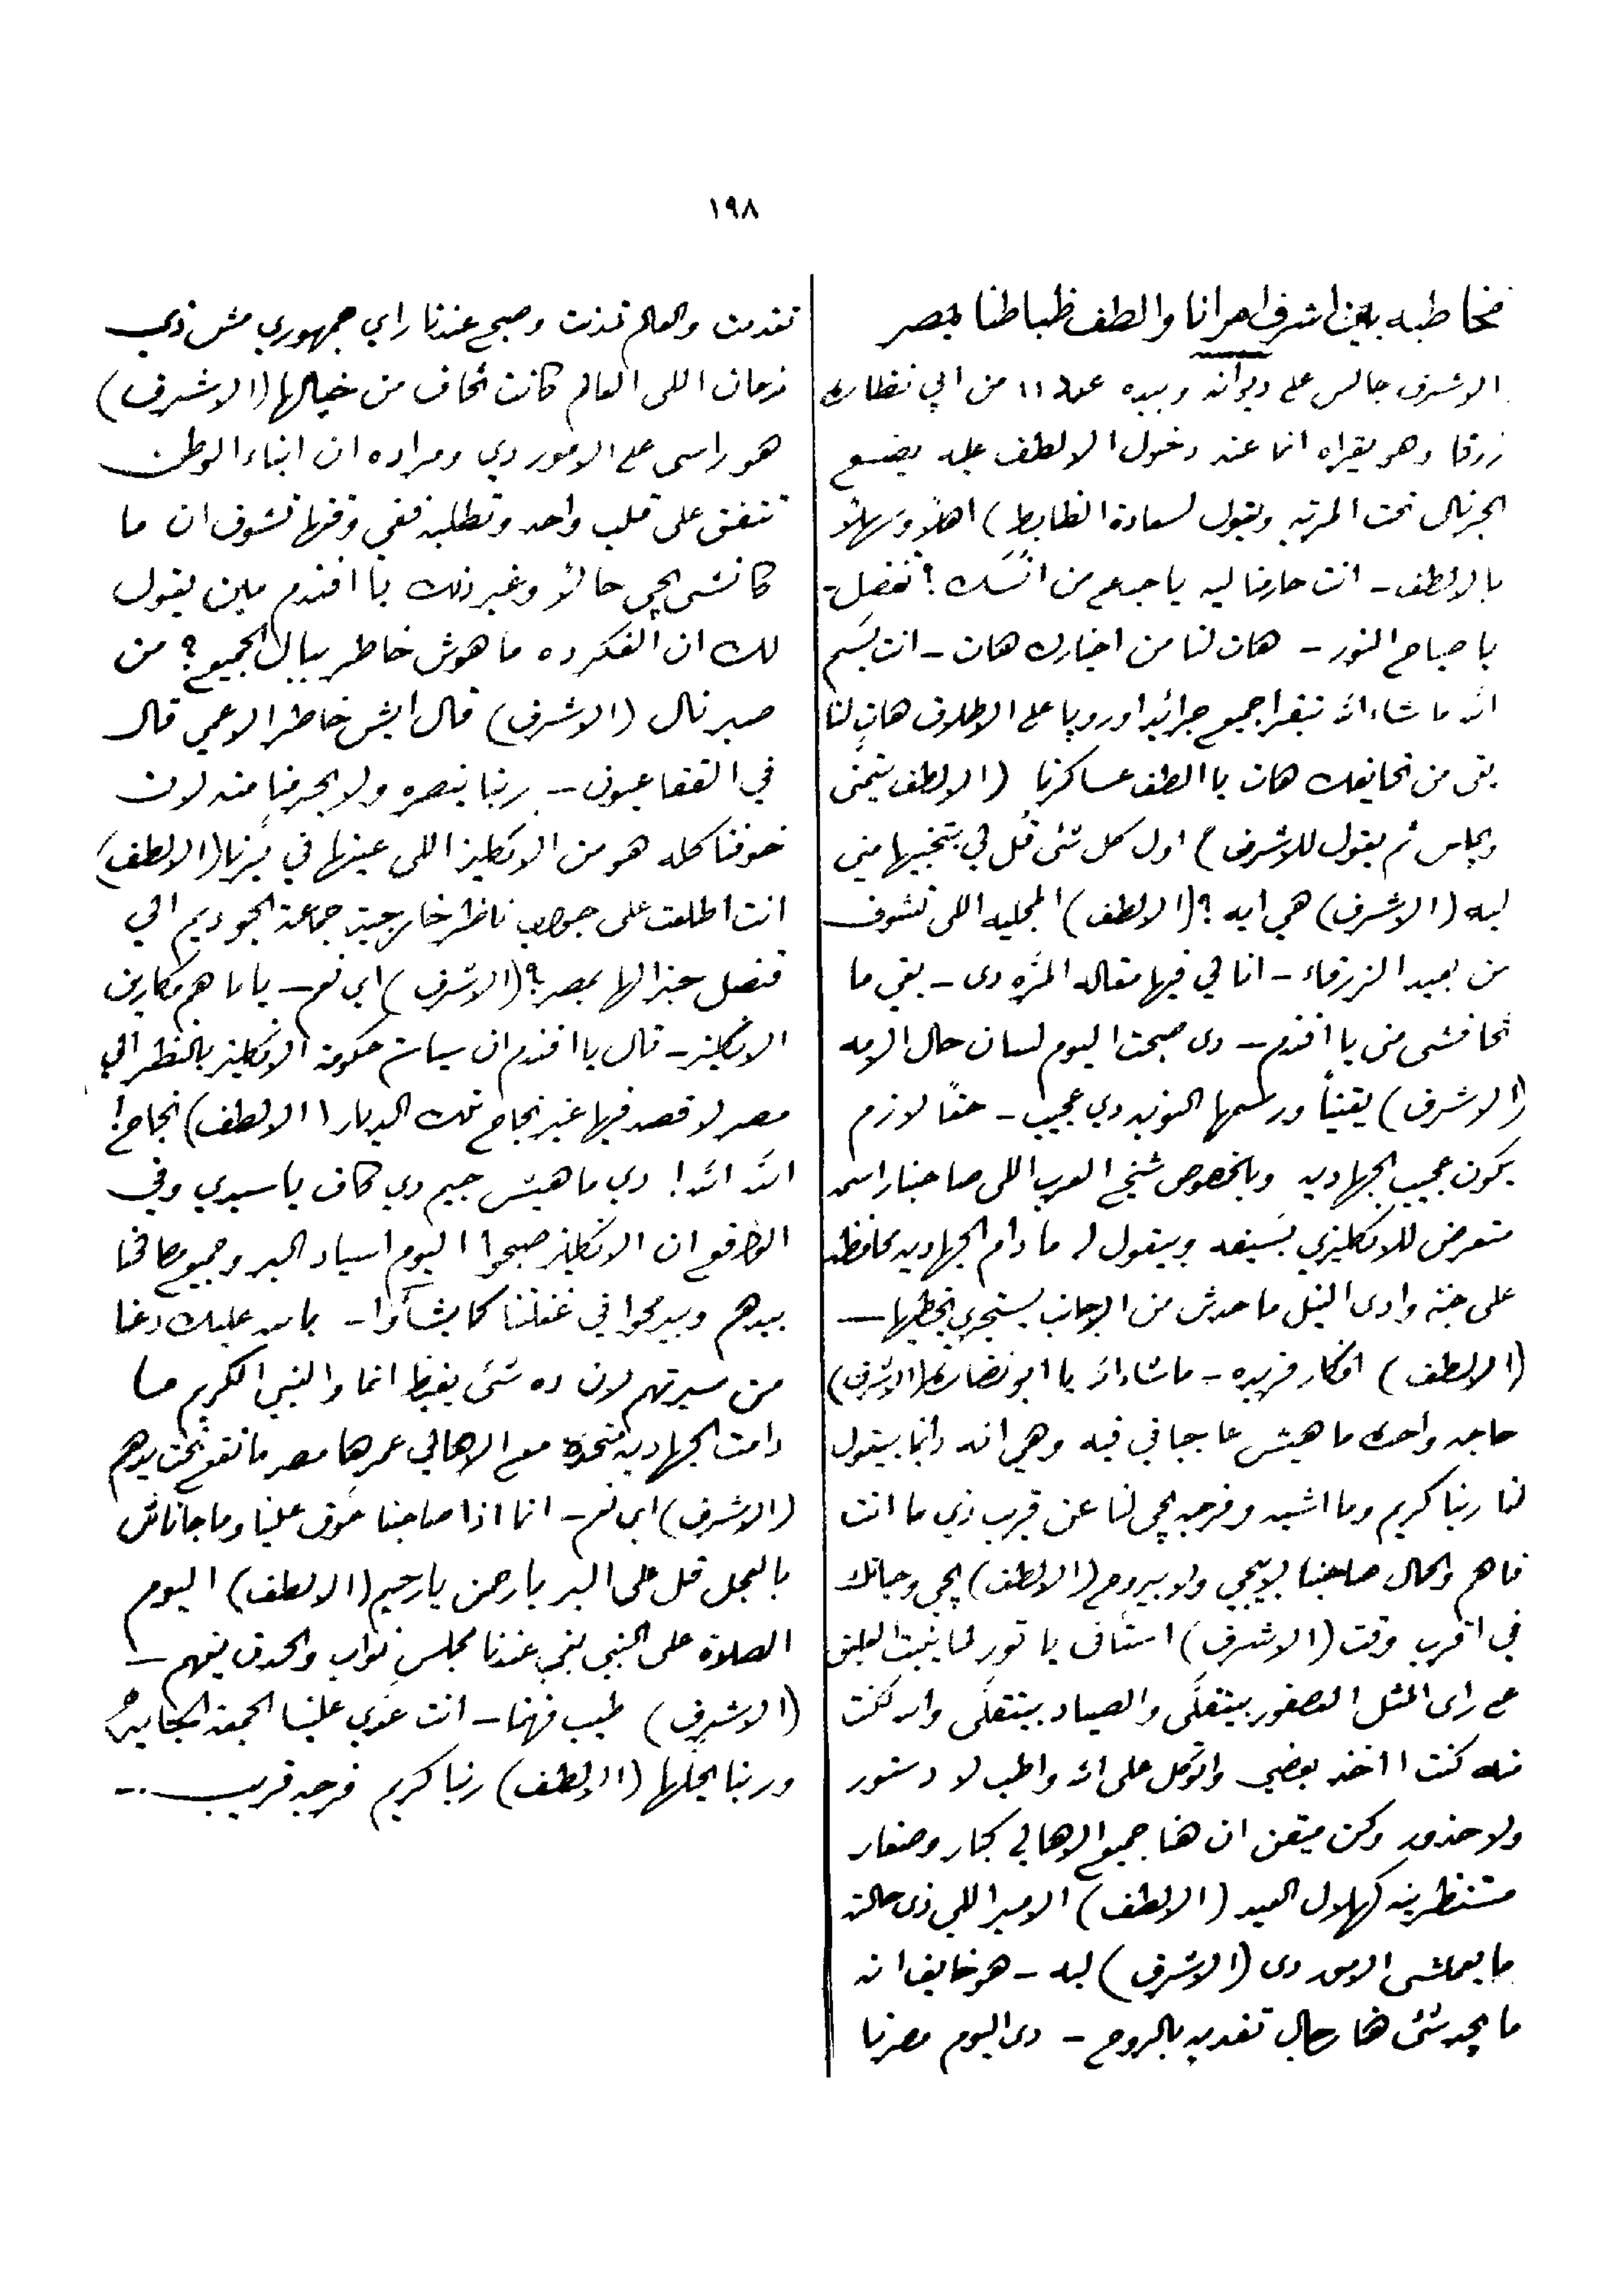 ١٩٨
مخاطبه بين اشرف امرانا والطف ظباطنا بمصر
الاشرف جالس على ديوانه وبيده عدد ١١ من ابي نظاره
زرقا وهو يقراه انما عند دخول الالطف عليه يضع
الجرنال تحت المرتبه ويقول لسعادة الظابط) اهلاً وسهلاً
بالالطف - انت حارمنا ليه يا جدع من انسك؟ تفضل -
يا صباح النور - هات لنا من اخبارك هات - انت بسم
الله ما شاء الله تبقرا جميع جرائد اوروپا على الاطلاق هات لنا
بقى من تحايفك هات يا الطف عساكرنا (الالطف يتمنى
ويجلس ثم يقول للاشرف) اول كل شئ قل لي بتخبيها مني
ليه (الاشرف) هي ايه؟ (الالطف) المجليه اللى تشوف
من بعيد الزرقاء - انا لي فيها مقاله المره دى - بقى ما
تخافشى منى يا افندم - دى صبحت اليوم لسان حال الامه
(الاشرف) يقيناً ورسمها النوبه دي عجيب - حقاً لازم
يكون عجيب الجهاديه وبالخصوص شيخ العرب اللى صاحبنا راسمه
متعرض للانكليزي بسيفه وبيقول له ما دام الجهاديه محافظه
على جنة وادى النيل ما حدش من الاجانب يستجري يخطيها —
(الالطف) افكار فريده - ما شاء الله يا ابو نضاره (الاشرف)
حاجه واحده ما هيش عاجباني فيه وهي انه دائماً بيقول
لنا ربنا كريم وما اشبه وفرجه يجي لنا عن قريب زي ما انت
فاهم والحال صاحبنا لا بيجي ولا بيروح (الالطف) يجي وحياتك
في اقرب وقت (الاشرف) استنى يا تور لما ينبت العليق
على راى المثل العصفور بيتفلى والصياد بيتقلى والله لو كنت
منه كنت ااخذ بعضي واتوكل على الله واطب لا دستور
ولا حذور وكن متقن ان هنا جميع الاهالي كبار وصغار
مستنظرينه كهلال العيد (الالطف) الامير اللي زى حالته
ما يعملشى الامور دى (الاشرف) ليه - هو خايف انه
ما يجدشئ هنا رجال تفديه بالروح - دى اليوم مصرنا
تقدمت والعالم تمدنت وصبح عندنا راي جمهوري مش زي
زمان اللى العالم كانت تخاف من خيالها (الاشرف)
هو راسى على الامور دي ومراده ان ابناء الوطن
تتفق على قلب واحد وتطلبه ففي وقتها تشوف ان ما
كانشى يجي حالاً وغير ذلك يا افندم مين يقول
لك ان الفكر ده ما هوش خاطر ببال الجميع؟ من
صبر نال (الاشرف) قال ايش خاطر الاعمي قال
في القفا عيون - ربنا ينصره ولا يحرمنا منه لان
خوفنا كله هو من الانكليز اللى عينها في برنا (الالطف)
انت اطلعت على جواب ناظر خارجية جماعة الجوديم الي
قنصل جنرالها بمصر؟ (الاشرف) اي نعم - ياما هم مكارين
الانكليز - قال يا افندم ان سياسة حكومة الانكليز بالنظر الي
مصر لا قصد فيها غير نجاح تلك الديار! (الالطف) نجاح!
الله الله! دي ما هيش جيم دي كاف يا سيدي وفي
الواقع ان الانكليز صبحوا اليوم اسياد البر وجميع مصالحنا
بيدهم وبيرمحوا في غفلتنا كما يشآؤا - بالله عليك دعنا
من سيرتهم لان ده شئ يغيظ انما والنبي الكريم ما
دامت الجهاديه متحده مع الاهالي عمرها مصر ما تقع تحت يدهم
(الاشرف) اي نعم - انما اذا صاحبنا عوق علينا وما جاناش
بالعجل قل على البر يا رحمن يا رحيم (الالطف) اليوم
الصلاة على النبي بقى عندنا مجلس نواب والحدق يفهم —
(الاشرف) طيب فهمنا - انت عدي علينا الجمعه الجايه
وربنا يحلها (الالطف) ربنا كريم فرجه قريب ..-